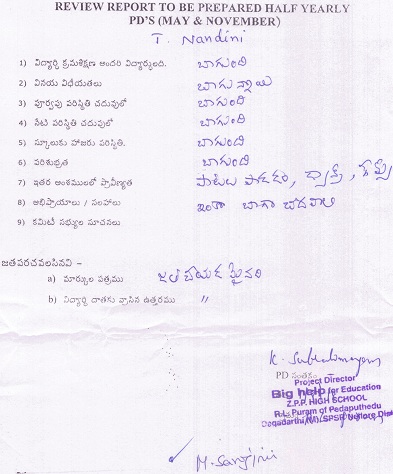 REVIEW REPORT TO BE PREPARED HALF YEARLY
PD'S (MAY & NOVEMBER)
T. Nandini
1) విద్యార్థి క్రమశిక్షణ అందరి విద్యార్థులది. బాగుంది
2) వినయ విధేయతలు బాగున్నాయి
3) పూర్వపు పరిస్థితి చదువులో బాగుంది
4) నేటి పరిస్థితి చదువులో బాగుంది
5) స్కూలుకు హాజరు పరిస్థితి. బాగుంది
6) పరిశుభ్రత బాగుంది
7) ఇతర అంశములలో ప్రావీణ్యత పాటలు పాడడం,
8) అభిప్రాయాలు / సలహాలు ఇంకా బాగా చదవాలి
9) కమిటీ సభ్యుల సూచనలు
జతపరచవలసినవి -
a) మార్కుల పత్రము జత చేయడమైనది
b) విద్యార్థి దాతకు వ్రాసిన ఉత్తరము "
K. Subrahmanyam
PD సంతకం
Project Director
Big help for Education
Z.P.P. HIGH SCHOOL
R.L. Puram of Pedaputhedu
Dagadarthi(M), SPSR Nellore Dist